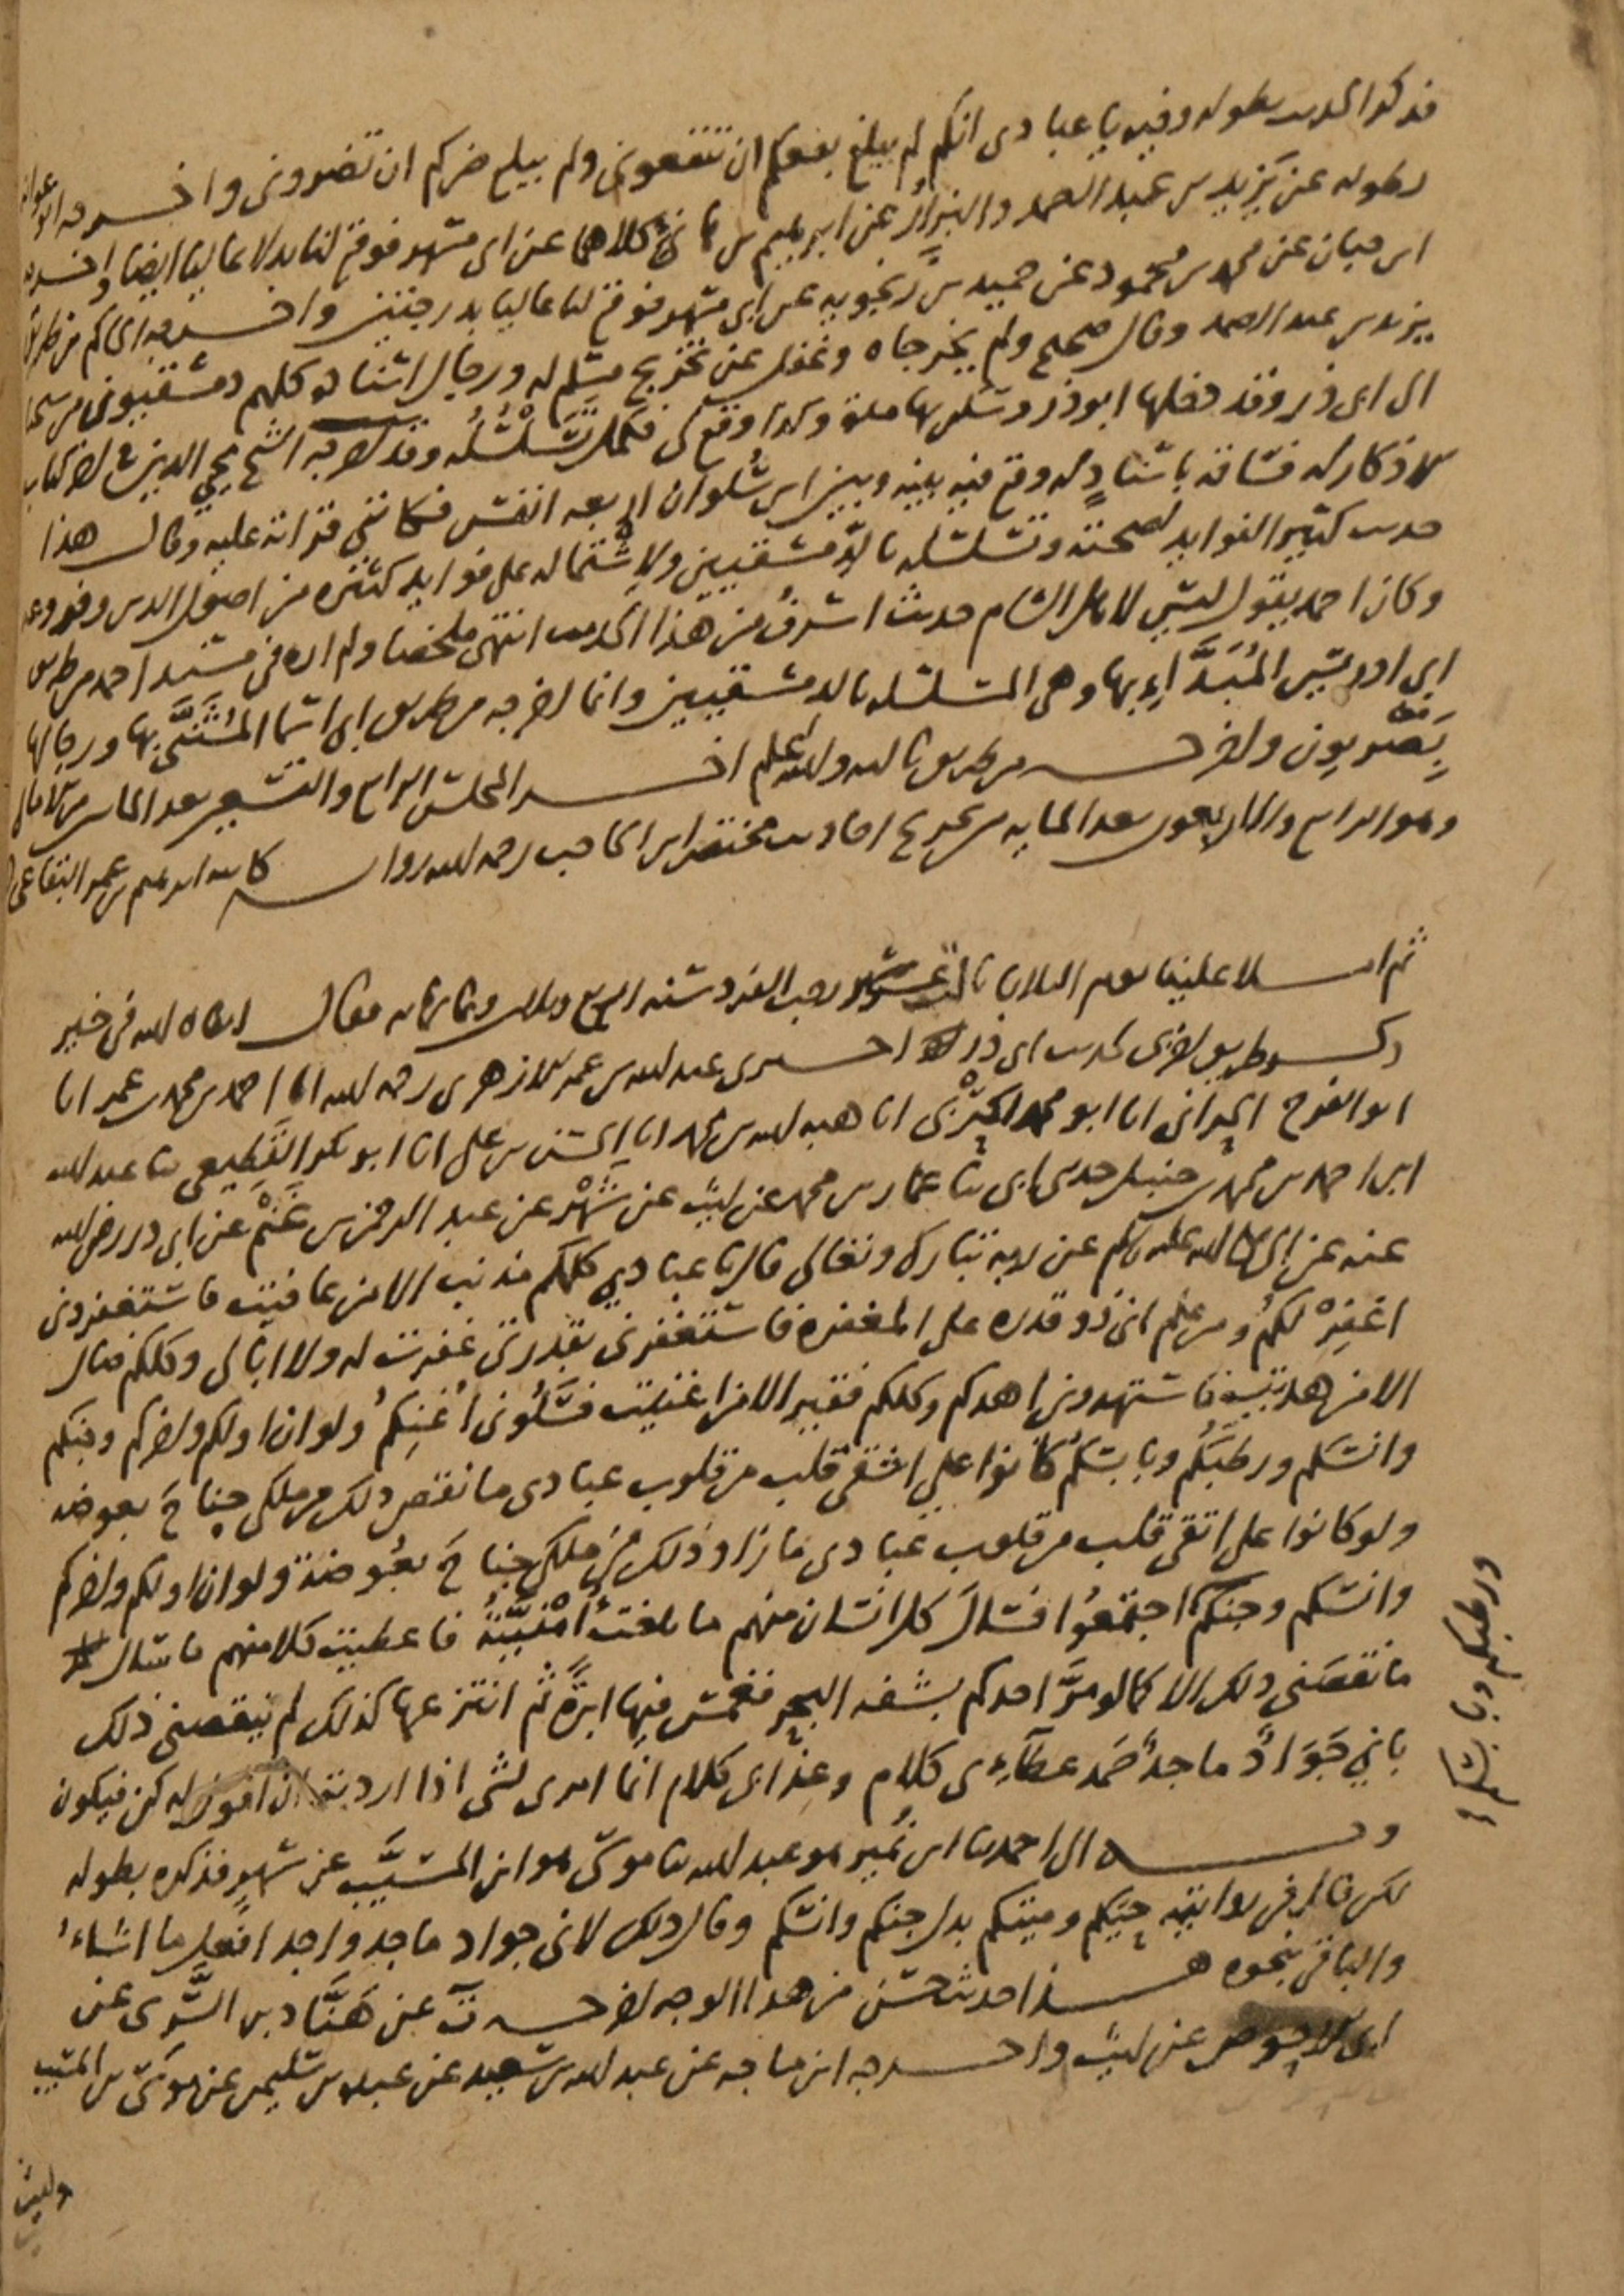 فذكر الحديث بطوله وفيه يا عبادى انكم لم يبلغ نفعكم ان تنفعونى ولم يبلغ ضركم ان تضرونى واخرجه ابو عوانة
بطوله عن يزيد بن عبد الصمد والبزار عن ابرهيم بن هانئ كلاهما عن ابى مسهر فوقع لنا بدلا عاليا ايضا واخرجه
ابن حبان عن محمد بن محمود عن حميد بن زنجويه عن ابى مسهر فوقع لنا عاليا بدرجتين واخرجه الحاكم من طريق
يزيد بن عبد الصمد وقال صحيح ولم يخرجاه وغفل عن تخريج مسلم له ورجال اسناده كلهم دمشقيون من سعيد
الى ابى ذر وقد دخلها ابو ذر وسكن بها مدة وكذا وقع لى فكمل تسلسله وقد اخرجه الشيخ محيى الدين فى اخر كتاب
الاذكار له فساقه باسناد له وقع فيه بينه وبين ابن سلوان اربعة انفس فكاننى قراته عليه وقال هذا
حديث كثير الفوايد لصحته وتسلسله بالدمشقيين ولاشتماله على فوايد كثيرة من اصول الدين وفروعه
وكان احمد يقول ليس لاهل الشام حديث اشرف من هذا الحديث انتهى ملخصا ولم اره فى مسند احمد من طريق
ابى ادريس المبدا بها وهى المسلسله بالدمشقيين وانما اخرجه من طريق ابى اسما المثنى بها ورجالها
بصريون واخرجه من طريق ثالثه والله اعلم اخر المجلس الرابع والتسعين بعد الماىىن من الامالى
وهو الرابع والاربعون بعد المايه من تخريج احاديث مختصر ابن الحاجب رحمه الله رواىة كاتبه ابرهيم بن عمر البقاعى
ثم املا علينا يوم الثلاثا ثالث عشر شهر رجب الفرد سنه اربع وثلاثىن وثمانمائه فقال ابقاه الله فى خير
ذكر طريق اخرى لحديث ابى ذر اخبرنى عبد الله بن عمر الازهرى رحمه الله انا احمد بن محمد بن عمر انا
ابو الفرج الحرانى انا ابو محمد الحربى انا هبة الله بن محمد انا الحسن بن على انا ابو بكر القطيعى ثنا عبد الله
ابن احمد بن محمد بن حنبل حدثنى ابى ثنا عمار بن محمد عن ليث عن شهر عن عبد الرحمن بن غنم عن ابى ذر رضى الله
عنه عن النبى صلى الله عليه وسلم عن ربه تبارك وتعالى قال يا عبادى كلكم مذنب الا من عافيت فاستغفرونى
اغفر لكم ومن علم انى ذو قدرة على المغفرة فاستغفرنى بقدرتى غفرت له ولا ابالى وكلكم ضال
الا من هديت فاستهدونى اهدكم وكلكم فقير الا من اغنيت فسلونى اغنكم ولو ان اولكم واخركم وجنكم
وانسكم ورطبكم ويابسكم كانوا على اشقى قلب من قلوب عبادى ما نقص ذلك من ملكى جناح بعوضه
ولو كانوا على اتقى قلب من قلوب عبادى ما زاد ذلك من ملكى جناح بعوضة ولو ان اولكم واخركم
وانسكم وجنكم اجتمعوا فسال كل انسان منهم ما بلغت امنيته فاعطيت كلا منهم ما سال
ورطبكم ويابسكم
ما نقصنى ذلك الا كما لو مر احدكم بشفه البحر فغمس فيها ابرة ثم انتزعها كذلك لم ينقصنى ذلك
بانى جواد ماجد صمد عطاءى كلام وعذابى كلام انما امرى لشى اذا اردته ان اقول له كن فيكون
وبه الى احمد ثنا ابن نمير هو عبد الله ثنا موسى هو ابن المسيب عن شهر فذكره بطوله
لكن قال فى روايته حيكم وميتكم بدل جنكم وانسكم وقال ذلك لانى جواد ماجد واجد افعل ما اشاء
والباقى بنحوه هذا حديث حسن من هذا الوجه اخرجه ت عن هناد بن السرى عن
ابى الاحوص عن ليث واخرجه ابن ماجه عن عبد الله بن سعيد عن عبده بن سليمن عن موسى بن المسيب
وليث